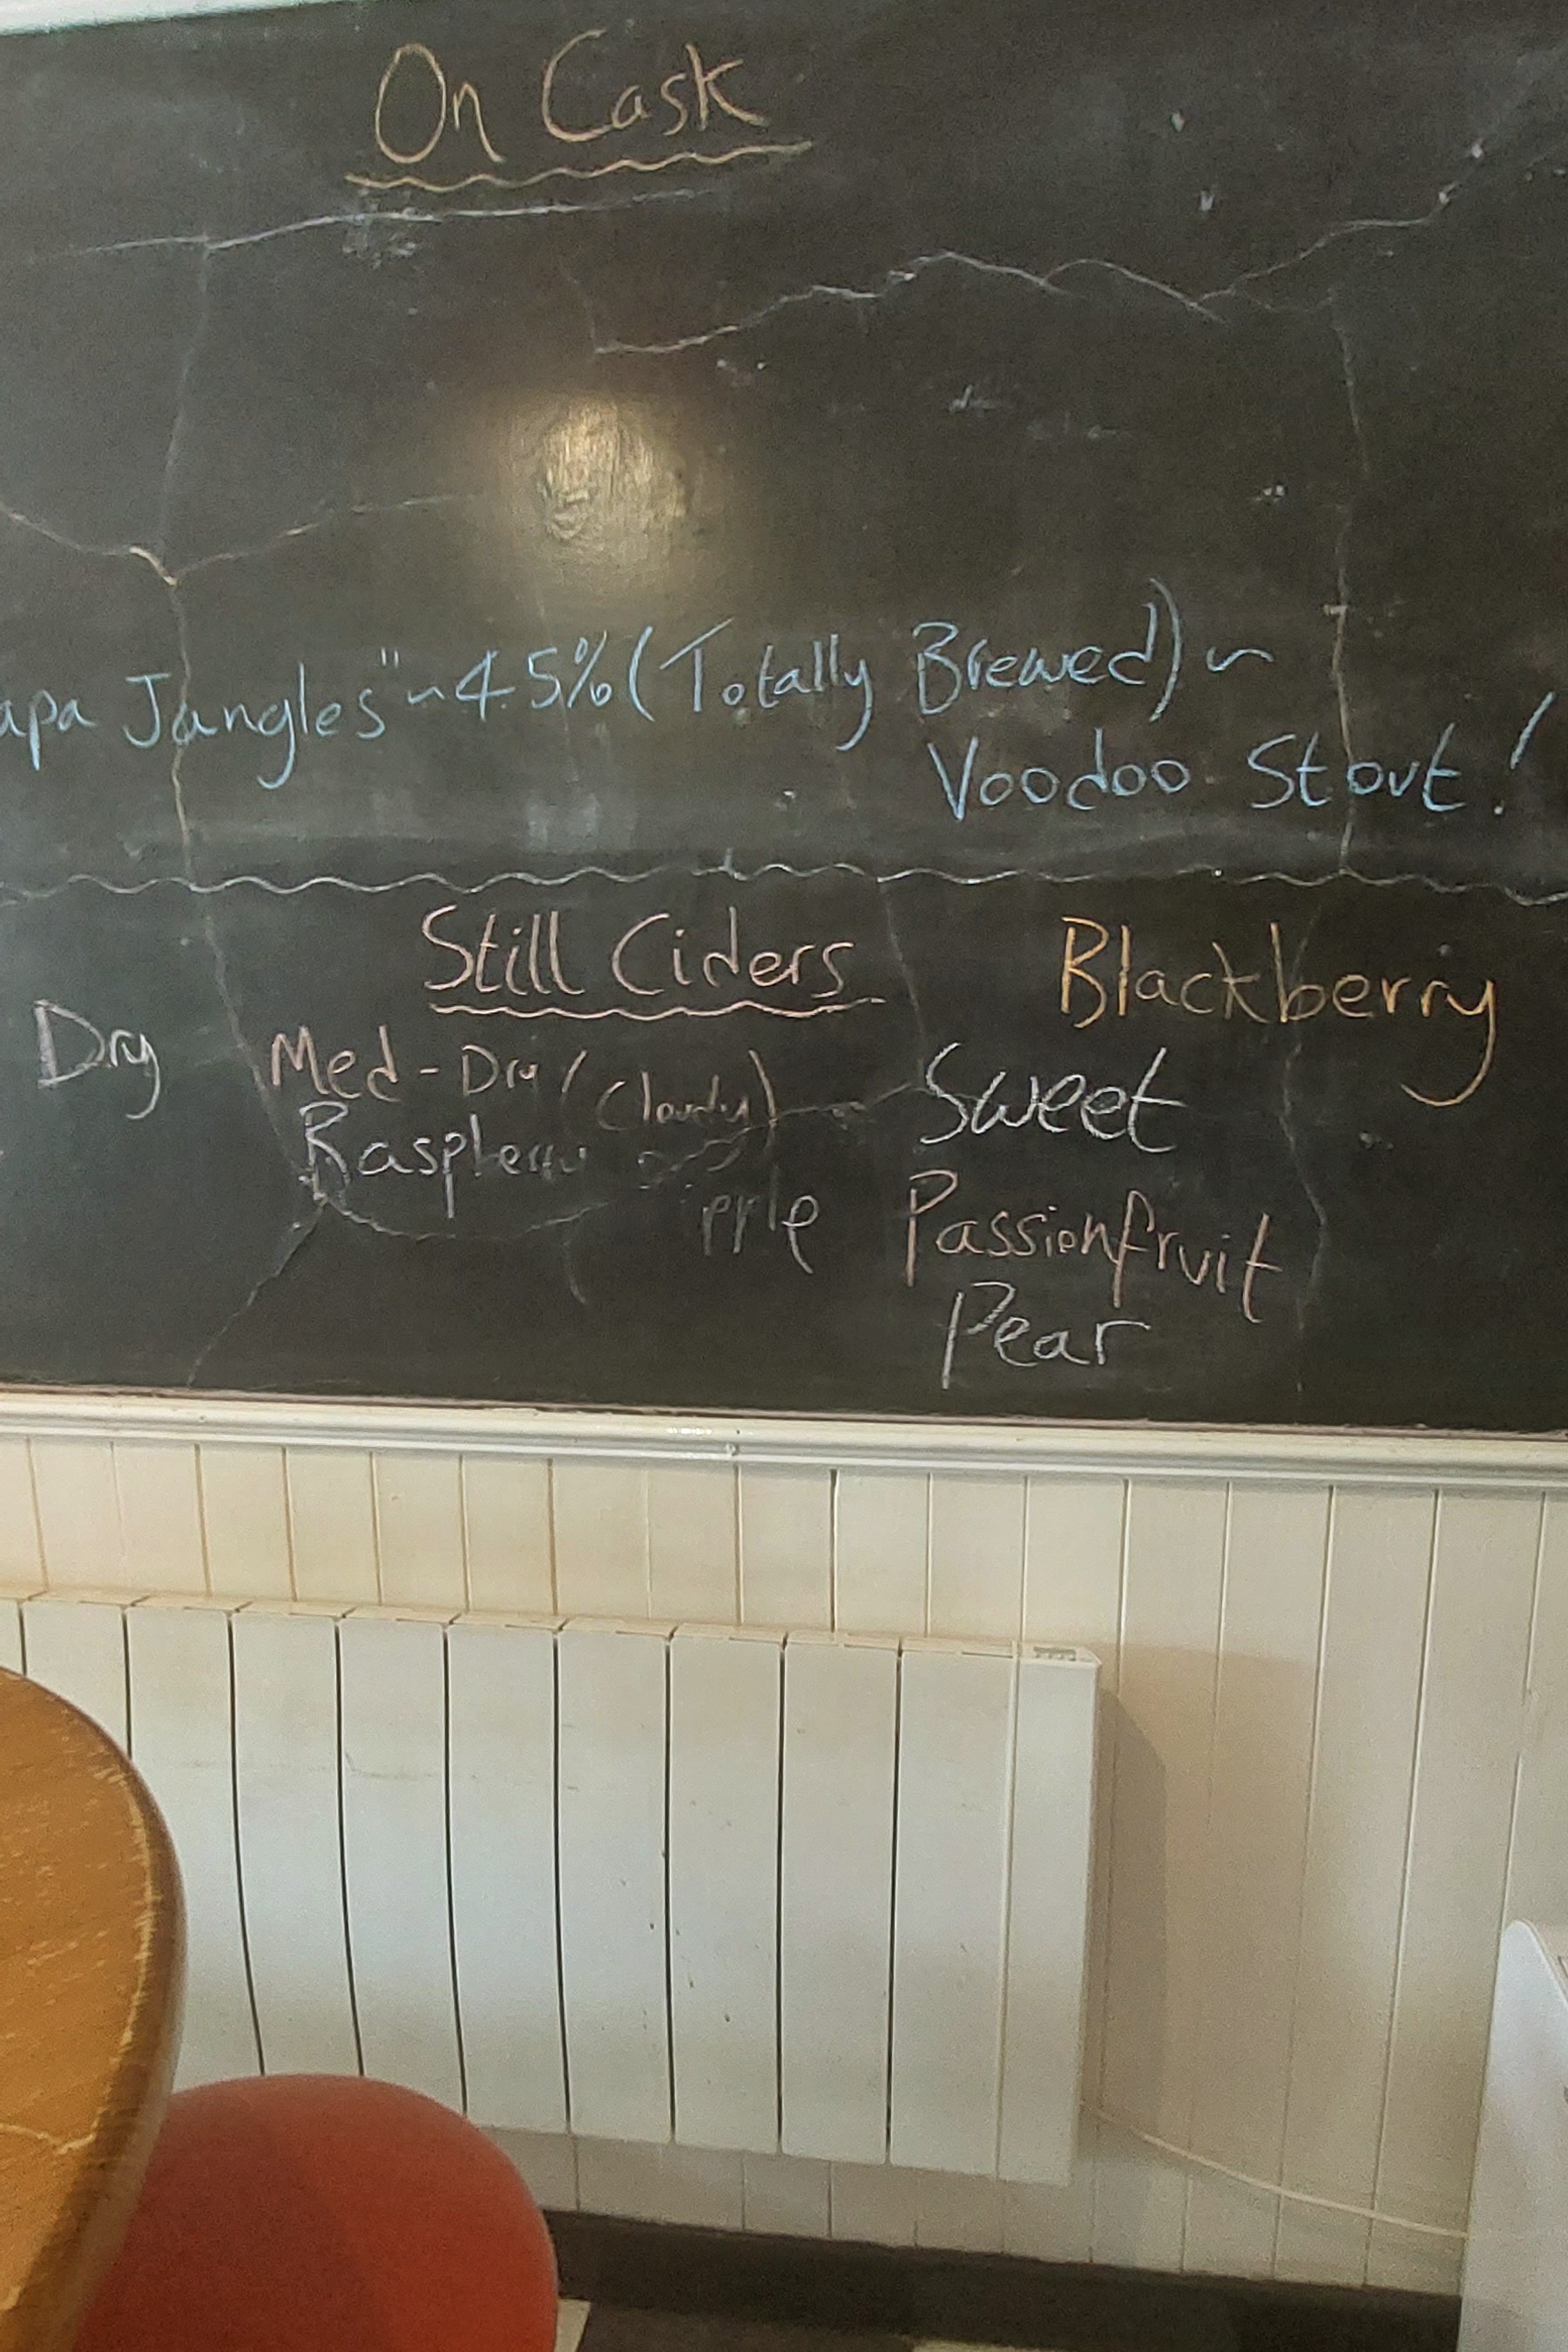 On Cask
apa Jangles" ~ 4.5% (Totally Brewed) ~
Voodoo Stout!
Still Ciders
Blackberry
Dry
Med-Dry (Cloudy)
Sweet
Raspberry
Passionfruit
Pear